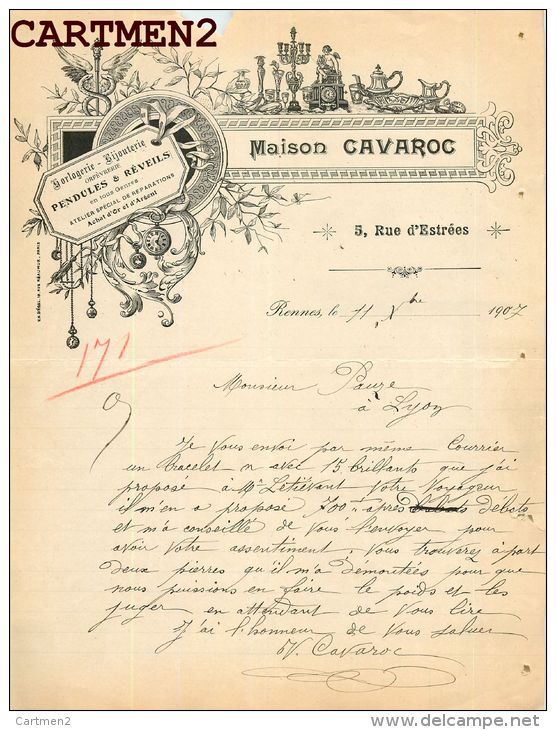 CARTMEN2
Horlogerie - Bijouterie
ORFÈVRERIE
PENDULES & RÉVEILS
en tous Genres
ATELIER SPÉCIAL DE RÉPARATIONS
Achat d'Or et d'Argent
Maison CAVAROC
5, Rue d'Estrées
Rennes, le 11 Xbre 1907
171
Monsieur Pauze
à Lyon
Je vous envoi par même Courrier
un bracelet or avec 15 brillants que j'ai
proposé à Mr Letiévant Votre Voyageur
il m'en a proposé 700 après débats
et m'a conseillé de Vous l'envoyer pour
avoir Votre assentiment, Vous trouverez à part
deux pierres qu'il m'a démontées pour que
nous puissions en faire le poids et les
juger en attendant de Vous lire
J'ai l'honneur de Vous saluer
V. Cavaroc
Cartmen2
www.delcampe.net